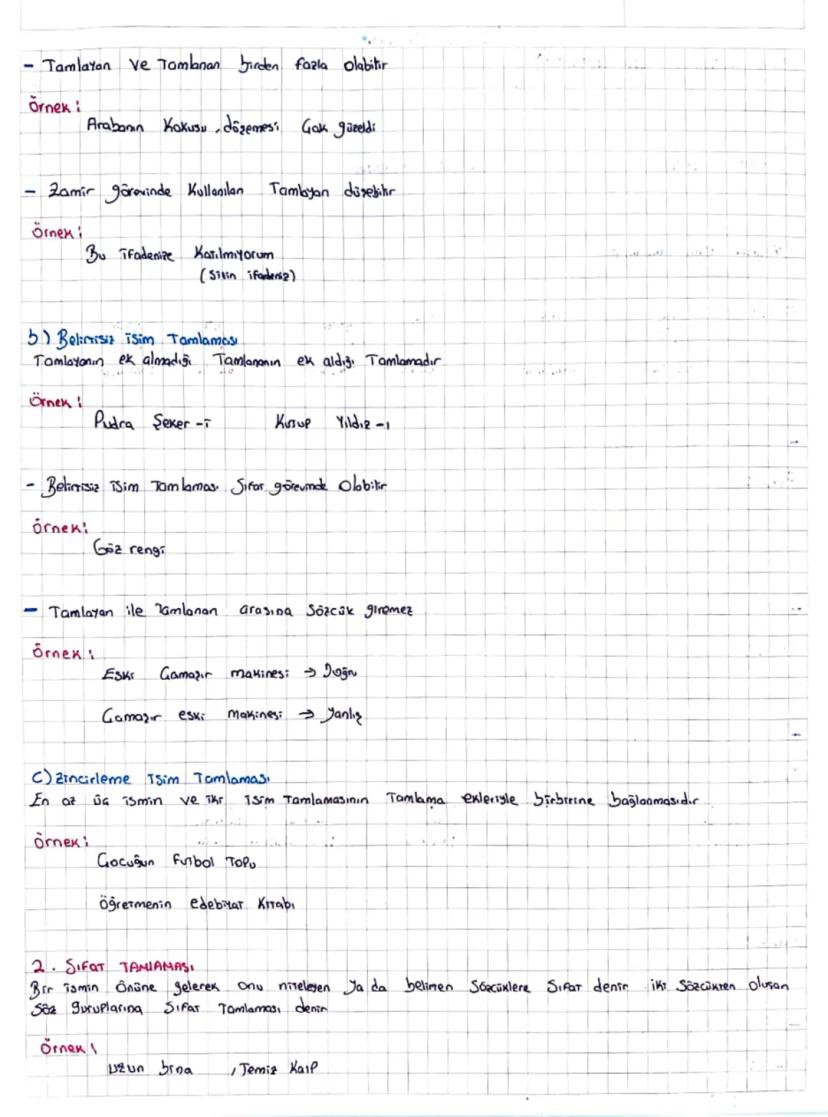 - Tamlayan ve Tamlanan birden fazla olabilir
Örnek:
Arabanın Kokusu, döşemesi Çok güzeldi
- Zamir görevinde Kullanılan Tamlayan düşebilir
Örnek:
Bu ifadenize Katılmıyorum
(Sizin ifadeniz)
b) Belirtisiz isim Tamlaması
Tamlayanın ek almadığı Tamlananın ek aldığı Tamlamadır
Örnek:
Pudra Şeker -i Kutup Yıldız -ı
- Belirtisiz isim Tamlaması Sıfat görevinde Olabilir
örnek:
Göz rengi
- Tamlayan ile Tamlanan arasına Sözcük giremez
Örnek:
Eski Çamaşır makinesi → Doğru
Çamaşır eski makinesi → Yanlış
C) Zincirleme isim Tamlaması
En az üç ismin ve iki isim Tamlamasının Tamlama ekleriyle birbirine bağlanmasıdır
örnek:
Çocuğun Futbol Topu
öğretmenin edebiyat Kitabı
2. SIFAT TAMLAMASI
Bir ismin Önüne gelerek onu niteleyen Ya da belirten Sözcüklere Sıfat denir iki Sözcükten Oluşan
Söz guruplarına Sıfat Tamlaması denir
Örnek:
Uzun bina , Temiz Kalp